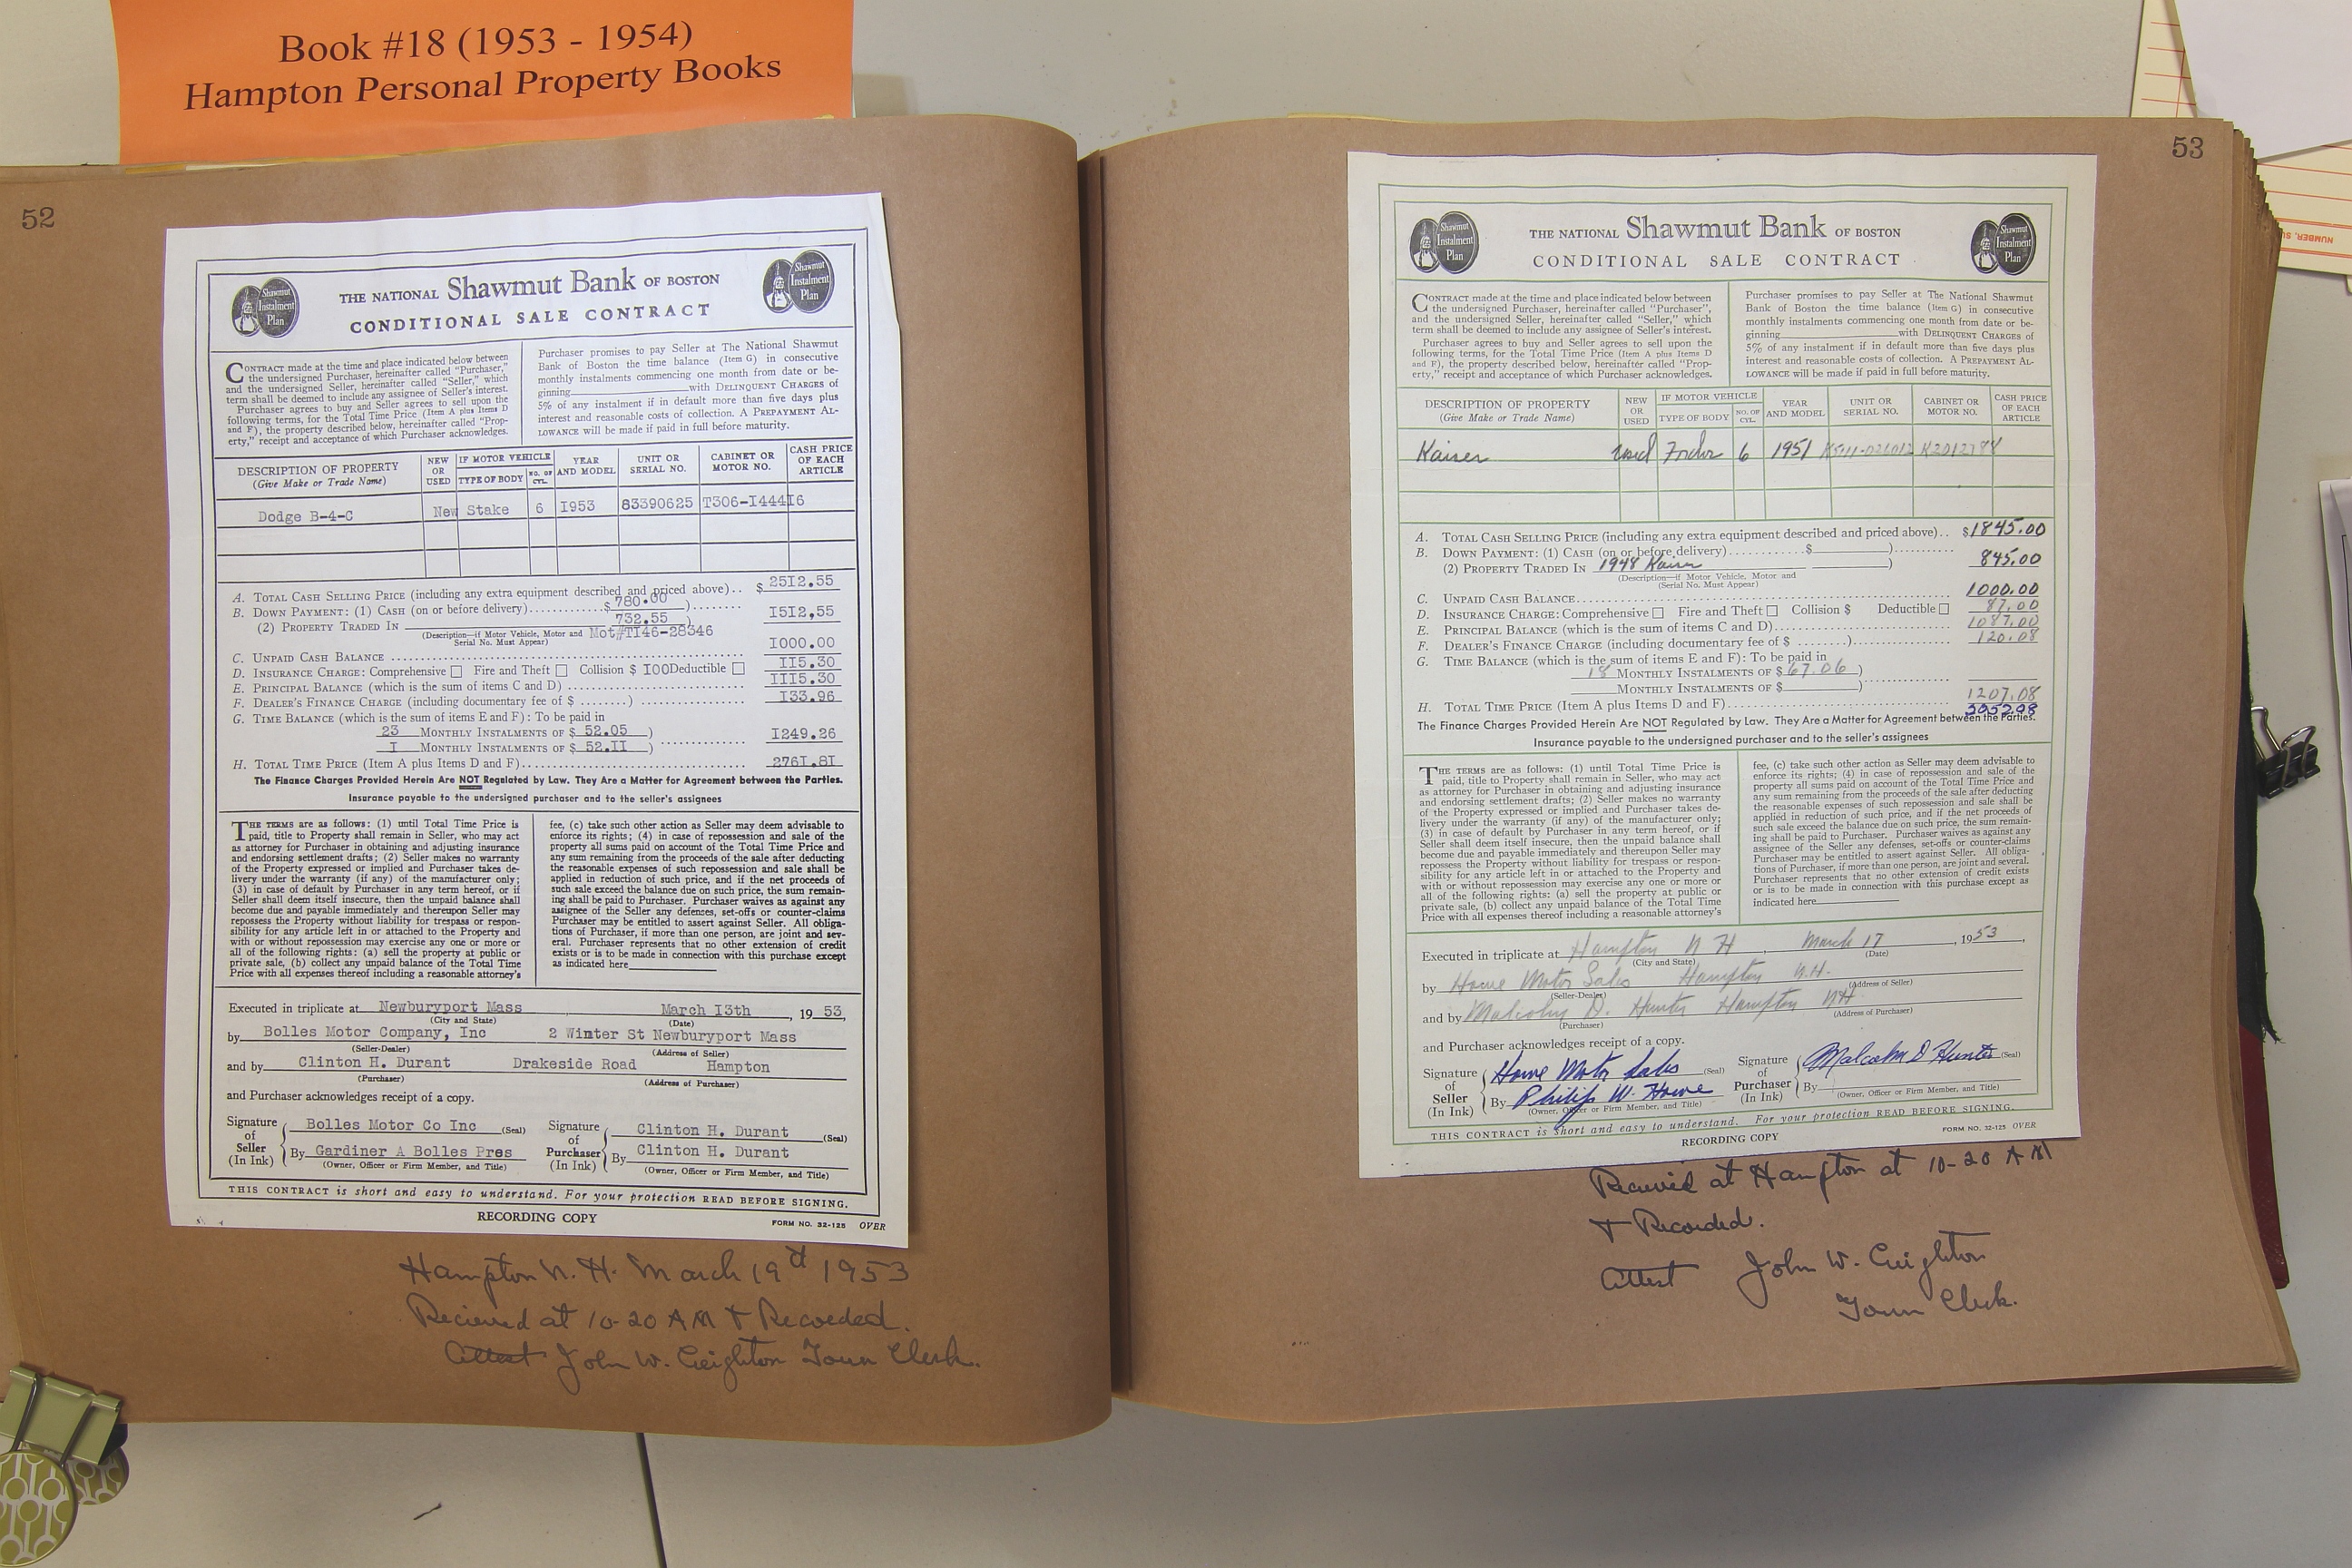 Book #18 (1953 - 1954)
Hampton Personal Property Books
52
Shawmut
Instalment
Plan
THE NATIONAL Shawmut Bank OF BOSTON
CONDITIONAL SALE CONTRACT
Shawmut
Instalment
Plan
CONTRACT made at the time and place indicated below between
the undersigned Purchaser, hereinafter called "Purchaser,"
and the undersigned Seller, hereinafter called "Seller," which
term shall be deemed to include any assignee of Seller's interest.
Purchaser agrees to buy and Seller agrees to sell upon the
following terms, for the Total Time Price (Item A plus Items D
and F), the property described below, hereinafter called "Prop-
erty," receipt and acceptance of which Purchaser acknowledges.
Purchaser promises to pay Seller at The National Shawmut
Bank of Boston the time balance (Item G) in consecutive
monthly instalments commencing one month from date or be-
ginning with DELINQUENT CHARGES of
5% of any instalment if in default more than five days plus
interest and reasonable costs of collection. A PREPAYMENT AL-
LOWANCE will be made if paid in full before maturity.
DESCRIPTION OF PROPERTY
(Give Make or Trade Name)
NEW
OR
USED
IF MOTOR VEHICLE
TYPE OF BODY
NO. OF
CYL.
YEAR
AND MODEL
UNIT OR
SERIAL NO.
CABINET OR
MOTOR NO.
CASH PRICE
OF EACH
ARTICLE
Dodge B-4-C New Stake 6 I953 83390625 T306-I444I6
A. TOTAL CASH SELLING PRICE (including any extra equipment described and priced above).. $ 25I2.55
B. DOWN PAYMENT: (1) CASH (on or before delivery)............$ 780.00 )........ I5I2.55
(2) PROPERTY TRADED IN 732.55 )
(Description—if Motor Vehicle, Motor and Mot#TI46-28346
Serial No. Must Appear)
C. UNPAID CASH BALANCE I000.00
D. INSURANCE CHARGE: Comprehensive ☐ Fire and Theft ☐ Collision $ I00 Deductible ☐ II5.30
E. PRINCIPAL BALANCE (which is the sum of items C and D) III5.30
F. DEALER'S FINANCE CHARGE (including documentary fee of $ ........) I33.96
G. TIME BALANCE (which is the sum of items E and F): To be paid in
23 MONTHLY INSTALMENTS OF $ 52.05 )
I MONTHLY INSTALMENTS OF $ 52.II ) I249.26
H. TOTAL TIME PRICE (Item A plus Items D and F) 276I.8I
The Finance Charges Provided Herein Are NOT Regulated by Law. They Are a Matter for Agreement between the Parties.
Insurance payable to the undersigned purchaser and to the seller's assignees
THE TERMS are as follows: (1) until Total Time Price is
paid, title to Property shall remain in Seller, who may act
as attorney for Purchaser in obtaining and adjusting insurance
and endorsing settlement drafts; (2) Seller makes no warranty
of the Property expressed or implied and Purchaser takes de-
livery under the warranty (if any) of the manufacturer only;
(3) in case of default by Purchaser in any term hereof, or if
Seller shall deem itself insecure, then the unpaid balance shall
become due and payable immediately and thereupon Seller may
repossess the Property without liability for trespass or respon-
sibility for any article left in or attached to the Property and
with or without repossession may exercise any one or more or
all of the following rights: (a) sell the property at public or
private sale, (b) collect any unpaid balance of the Total Time
Price with all expenses thereof including a reasonable attorney's
fee, (c) take such other action as Seller may deem advisable to
enforce its rights; (4) in case of repossession and sale of the
property all sums paid on account of the Total Time Price and
any sum remaining from the proceeds of the sale after deducting
the reasonable expenses of such repossession and sale shall be
applied in reduction of such price, and if the net proceeds of
such sale exceed the balance due on such price, the sum remain-
ing shall be paid to Purchaser. Purchaser waives as against any
assignee of the Seller any defenses, set-offs or counter-claims
Purchaser may be entitled to assert against Seller. All obliga-
tions of Purchaser, if more than one person, are joint and sev-
eral. Purchaser represents that no other extension of credit
exists or is to be made in connection with this purchase except
as indicated here
Executed in triplicate at Newburyport Mass , March I3th , 19 53,
(City and State) (Date)
by Bolles Motor Company, Inc 2 Winter St Newburyport Mass
(Seller-Dealer) (Address of Seller)
and by Clinton H. Durant Drakeside Road Hampton
(Purchaser) (Address of Purchaser)
and Purchaser acknowledges receipt of a copy.
Signature
of
Seller
(In Ink)
Bolles Motor Co Inc (Seal)
By Gardiner A Bolles Pres
(Owner, Officer or Firm Member, and Title)
Signature
of
Purchaser
(In Ink)
Clinton H. Durant (Seal)
By Clinton H. Durant
(Owner, Officer or Firm Member, and Title)
THIS CONTRACT is short and easy to understand. For your protection READ BEFORE SIGNING.
RECORDING COPY
FORM NO. 32-125 OVER
Hampton N. H. March 19th 1953
Recieved at 10-20 AM & Recorded.
Attest John W. Creighton Town Clerk.
53
Shawmut
Instalment
Plan
THE NATIONAL Shawmut Bank OF BOSTON
CONDITIONAL SALE CONTRACT
Shawmut
Instalment
Plan
CONTRACT made at the time and place indicated below between
the undersigned Purchaser, hereinafter called "Purchaser",
and the undersigned Seller, hereinafter called "Seller," which
term shall be deemed to include any assignee of Seller's interest.
Purchaser agrees to buy and Seller agrees to sell upon the
following terms, for the Total Time Price (Item A plus Items D
and F), the property described below, hereinafter called "Prop-
erty," receipt and acceptance of which Purchaser acknowledges.
Purchaser promises to pay Seller at The National Shawmut
Bank of Boston the time balance (Item G) in consecutive
monthly instalments commencing one month from date or be-
ginning with DELINQUENT CHARGES of
5% of any instalment if in default more than five days plus
interest and reasonable costs of collection. A PREPAYMENT AL-
LOWANCE will be made if paid in full before maturity.
DESCRIPTION OF PROPERTY
(Give Make or Trade Name)
NEW
OR
USED
IF MOTOR VEHICLE
TYPE OF BODY
NO. OF
CYL.
YEAR
AND MODEL
UNIT OR
SERIAL NO.
CABINET OR
MOTOR NO.
CASH PRICE
OF EACH
ARTICLE
Kaiser used Fordor 6 1951
A. TOTAL CASH SELLING PRICE (including any extra equipment described and priced above).. $1845.00
B. DOWN PAYMENT: (1) CASH (on or before delivery)............$ ).......... 845.00
(2) PROPERTY TRADED IN 1948 Kaiser )
(Description—if Motor Vehicle, Motor and
Serial No. Must Appear)
C. UNPAID CASH BALANCE 1000.00
D. INSURANCE CHARGE: Comprehensive ☐ Fire and Theft ☐ Collision $ Deductible ☐ 87.00
E. PRINCIPAL BALANCE (which is the sum of items C and D) 1087.00
F. DEALER'S FINANCE CHARGE (including documentary fee of $ ........) 120.08
G. TIME BALANCE (which is the sum of items E and F): To be paid in
18 MONTHLY INSTALMENTS OF $ 67.06 )
MONTHLY INSTALMENTS OF $ ) 1207.08
H. TOTAL TIME PRICE (Item A plus Items D and F)
The Finance Charges Provided Herein Are NOT Regulated by Law. They Are a Matter for Agreement between the Parties.
Insurance payable to the undersigned purchaser and to the seller's assignees
THE TERMS are as follows: (1) until Total Time Price is
paid, title to Property shall remain in Seller, who may act
as attorney for Purchaser in obtaining and adjusting insurance
and endorsing settlement drafts; (2) Seller makes no warranty
of the Property expressed or implied and Purchaser takes de-
livery under the warranty (if any) of the manufacturer only;
(3) in case of default by Purchaser in any term hereof, or if
Seller shall deem itself insecure, then the unpaid balance shall
become due and payable immediately and thereupon Seller may
repossess the Property without liability for trespass or respon-
sibility for any article left in or attached to the Property and
with or without repossession may exercise any one or more or
all of the following rights: (a) sell the property at public or
private sale, (b) collect any unpaid balance of the Total Time
Price with all expenses thereof including a reasonable attorney's
fee, (c) take such other action as Seller may deem advisable to
enforce its rights; (4) in case of repossession and sale of the
property all sums paid on account of the Total Time Price and
any sum remaining from the proceeds of the sale after deducting
the reasonable expenses of such repossession and sale shall be
applied in reduction of such price, and if the net proceeds of
such sale exceed the balance due on such price, the sum remain-
ing shall be paid to Purchaser. Purchaser waives as against any
assignee of the Seller any defenses, set-offs or counter-claims
Purchaser may be entitled to assert against Seller. All obliga-
tions of Purchaser, if more than one person, are joint and several.
Purchaser represents that no other extension of credit exists
or is to be made in connection with this purchase except as
indicated here
Executed in triplicate at Hampton N H , March 17 , 1953,
(City and State) (Date)
by Howe Motor Sales Hampton N.H.
(Seller-Dealer) (Address of Seller)
and by Malcolm D. Hunter Hampton NH
(Purchaser) (Address of Purchaser)
and Purchaser acknowledges receipt of a copy.
Signature
of
Seller
(In Ink)
Howe Motor Sales (Seal)
By Philip W. Howe
(Owner, Officer or Firm Member, and Title)
Signature
of
Purchaser
(In Ink)
Malcolm D Hunter (Seal)
By
(Owner, Officer or Firm Member, and Title)
THIS CONTRACT is short and easy to understand. For your protection READ BEFORE SIGNING.
RECORDING COPY
FORM NO. 32-125 OVER
Recieved at Hampton at 10-20 AM
& Recorded.
Attest John W. Creighton
Town Clerk.